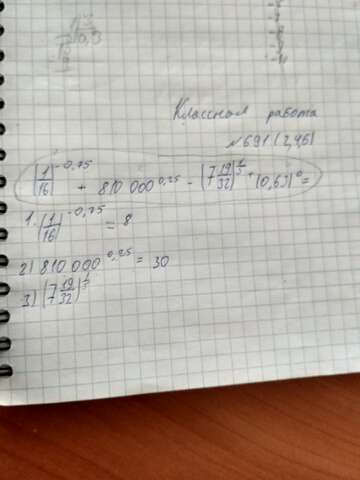 Классная работа
№691(2,4б)
(1/16)^-0,75 + 810 000^0,25 - (7 19/32)^1/5 + (0,63)^0 =
1. (1/16)^-0,75 = 8
2) 810 000^0,25 = 30
3) (7 19/32)^1/5